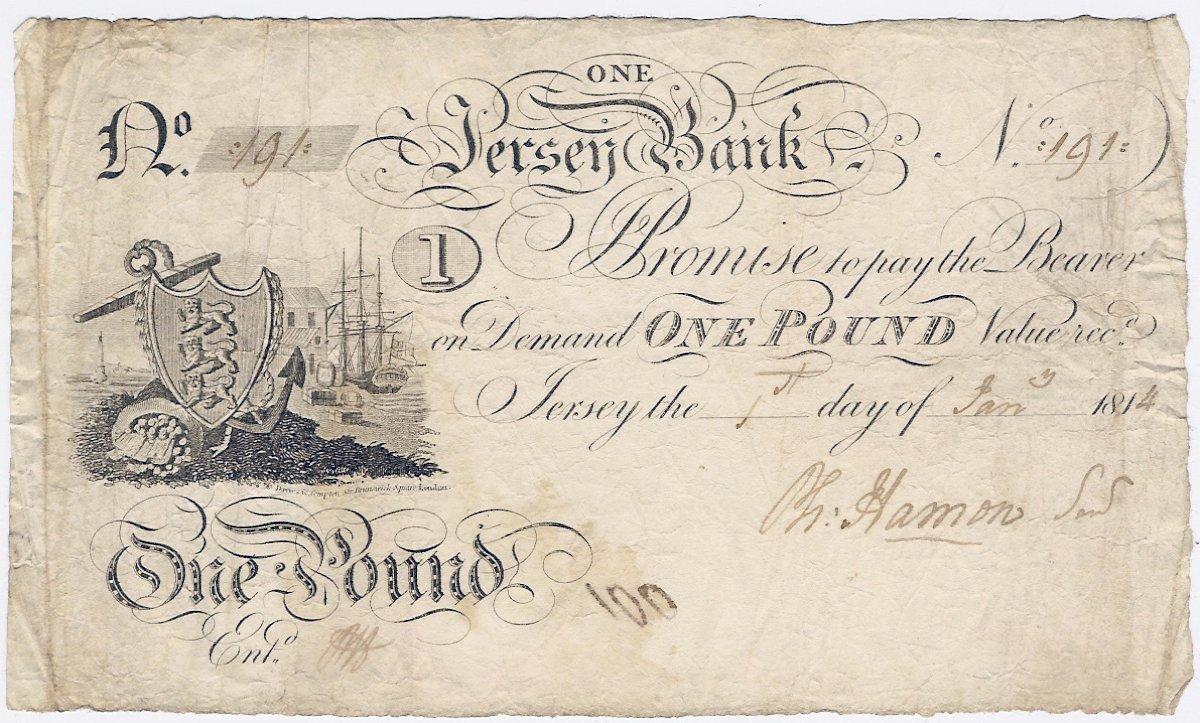 ONE
No. :191: Jersey Bank No. :191:
1 I Promise to pay the Bearer
on Demand ONE POUND Value recd.
Jersey the 1st day of Jany 1814
Ph: Hamon Senr
One Pound
100
Entd.